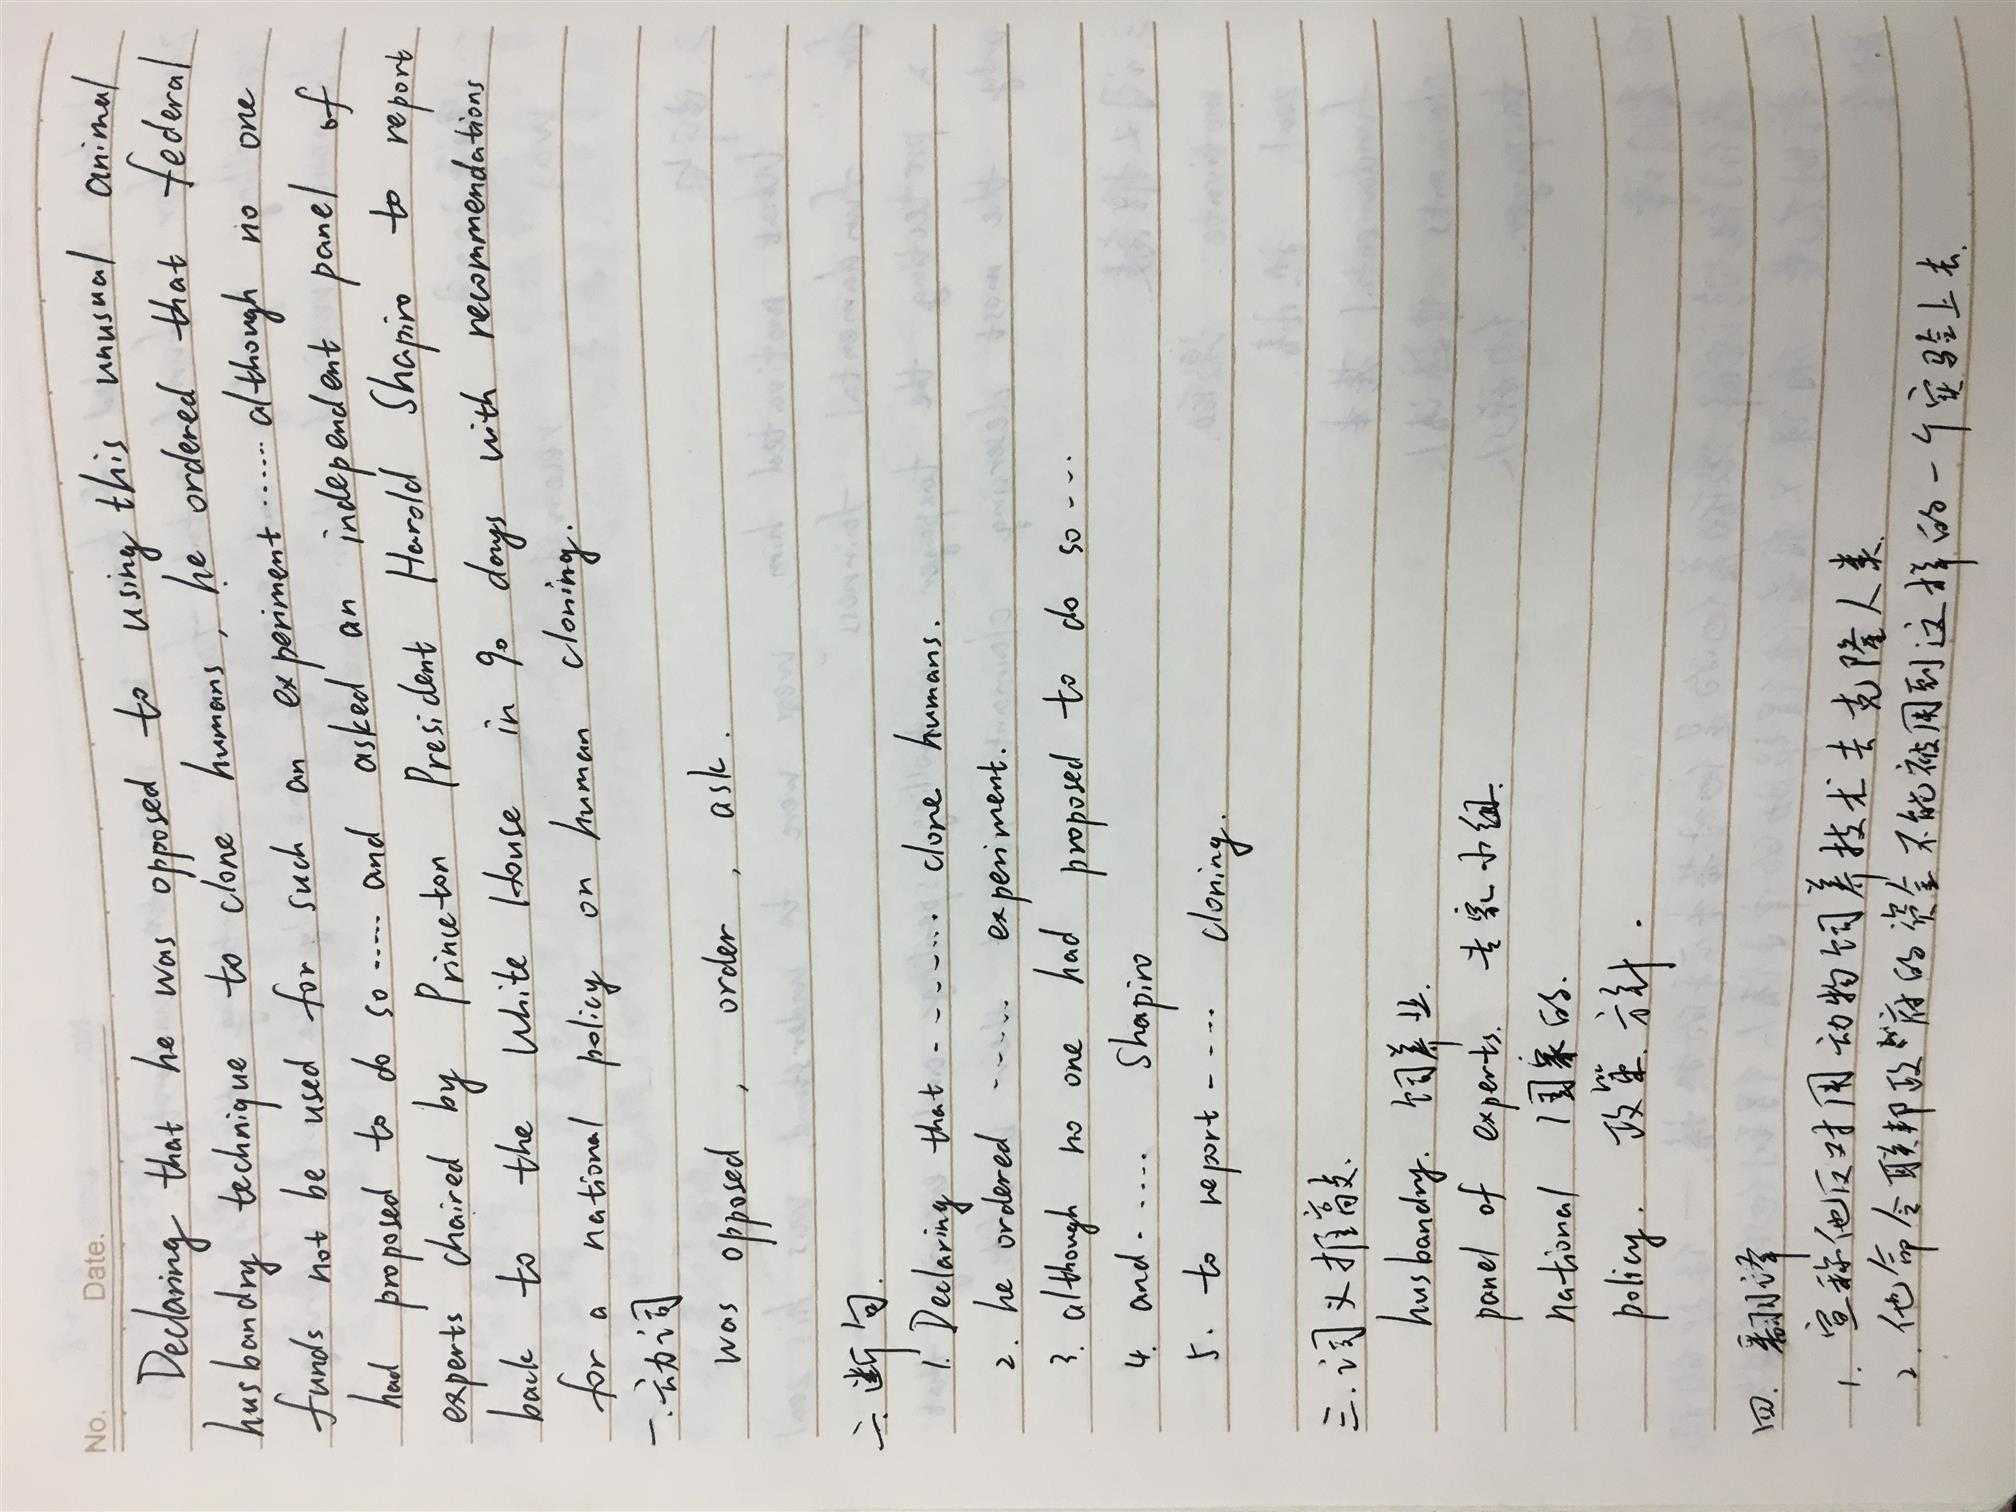 No.
Date.
Declaring that he was opposed to using this unusual animal
husbandry technique to clone humans, he ordered that federal
funds not be used for such an experiment ...... although no one
had proposed to do so ...... and asked an independent panel of
experts chaired by Princeton President Harold Shapiro to report
back to the White House in 90 days with recommendations
for a national policy on human cloning.
一. 动词
was opposed , order , ask .
二. 断句.
1. Declaring that ------- clone humans.
2. he ordered ------ experiment.
3. although no one had proposed to do so ---
4. and ..... Shapiro
5. to report ----- cloning.
三. 词义推敲.
husbandry. 饲养业.
panel of experts. 专家小组.
national 国家的.
policy. 政策. 方针 .
四. 翻译
1. 宣称他反对用动物饲养技术去克隆人类.
2. 他命令联邦政府的资金不能被用到这样的一个实验上去.